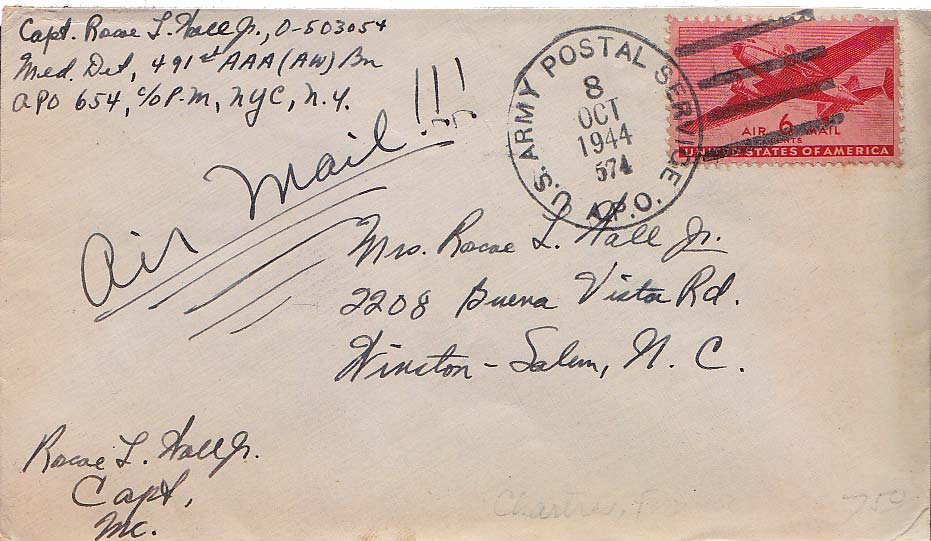 Capt. Roscoe L. Wall Jr., O-503054
Med. Det, 491st AAA (AW) Bn
APO 654, c/o P.M, NYC, N.Y.
Air Mail!!!
U.S. ARMY POSTAL SERVICE
8
OCT
1944
574
A.P.O.
AIR 6 MAIL
CENTS
UNITED STATES OF AMERICA
Mrs. Roscoe L. Wall Jr.
2208 Buena Vista Rd.
Winston-Salem, N. C.
Roscoe L. Wall Jr.
Capt,
MC.
Chartres, F
750